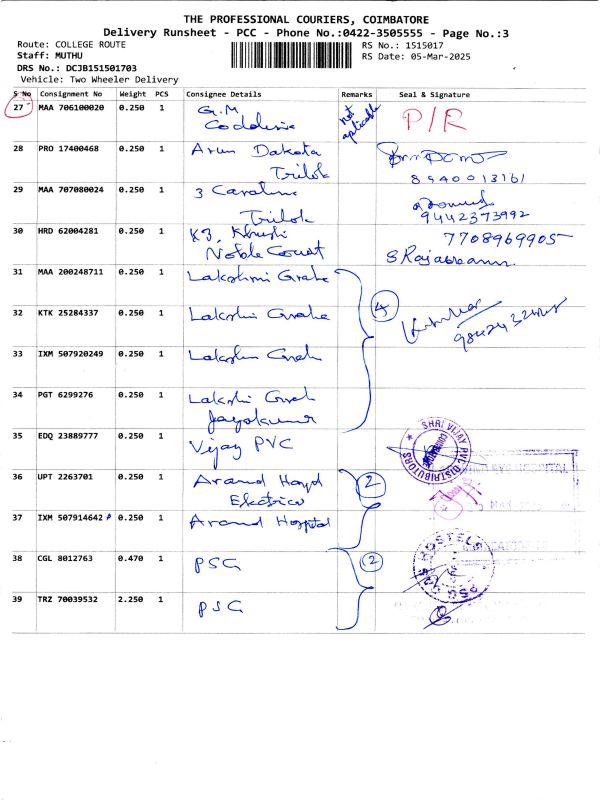 THE PROFESSIONAL COURIERS, COIMBATORE
Delivery Runsheet - PCC - Phone No.:0422-3505555 - Page No.:3
Route: COLLEGE ROUTE RS No.: 1515017
Staff: MUTHU RS Date: 05-Mar-2025
DRS No.: DCJB151501703
Vehicle: Two Wheeler Delivery
S No Consignment No Weight PCS Consignee Details Remarks Seal & Signature
27 MAA 706100020 0.250 1 G.M not aplicable P/R
28 PRO 17400468 0.250 1 Arun Dakota
Trilok 8940013161
29 MAA 707080024 0.250 1 3 Caroline
Trilok 9442373992
30 HRD 62004281 0.250 1 K3, Khushi 7708969905
Noble Court
31 MAA 200248711 0.250 1 Lakshmi Grahe
32 KTK 25284337 0.250 1 Lakshi Grahe 4
33 IXM 507920249 0.250 1 Lakshm
34 PGT 6299276 0.250 1 Lakshi
Jayakumar
35 EDQ 23889777 0.250 1 Vijay PVC SHRI VIJAY PVC DISTRIBUTORS
36 UPT 2263701 0.250 1 Aravnd 2 HOSPITAL
Electrico
37 IXM 507914642 0.250 1 Aravnd Hospital
38 CGL 8012763 0.470 1 PSG 2 HOSTELS
39 TRZ 70039532 2.250 1 PSG